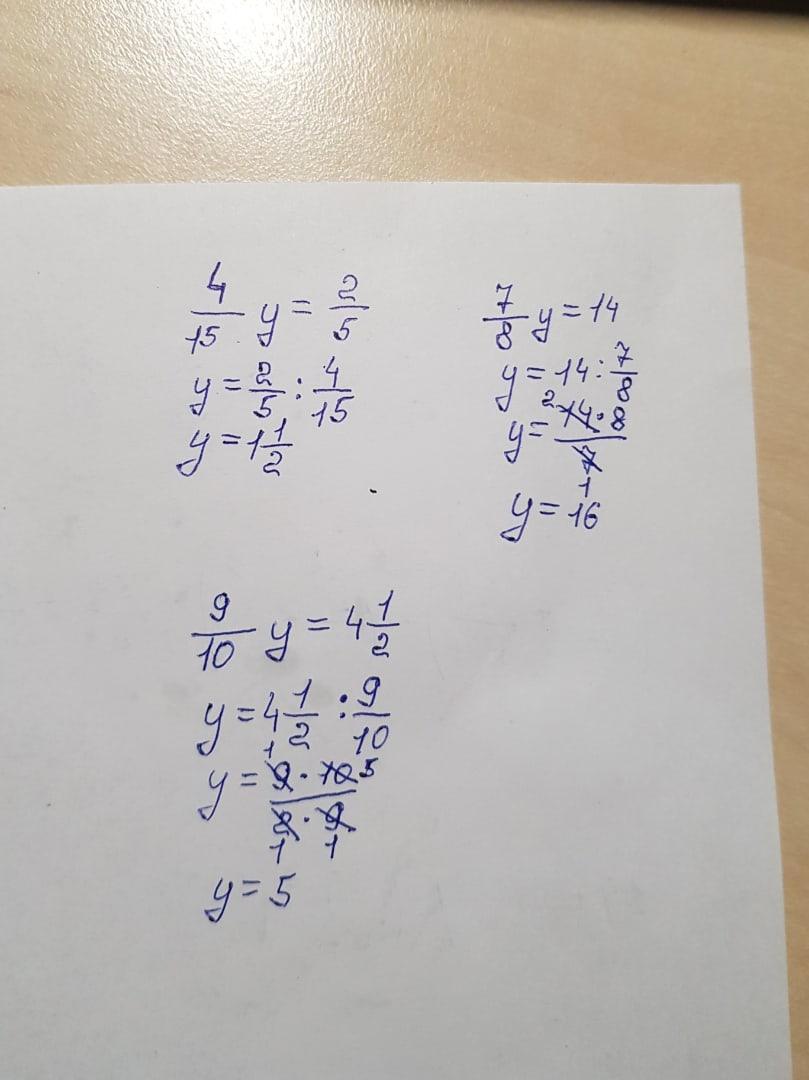 4/15 y = 2/5
y = 2/5 : 4/15
y = 1 1/2
7/8 y = 14
y = 14 : 7/8
y = 2 14 · 8 / 7 1
y = 16
9/10 y = 4 1/2
y = 4 1/2 : 9/10
y = 1 9 · 10 5 / 2 1 · 9 1
y = 5